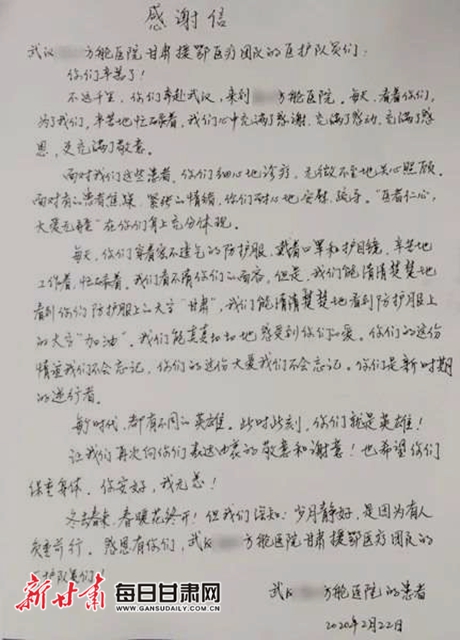 感谢信
武汉 方舱医院甘肃援鄂医疗团队的医护队员们：
你们辛苦了！
不远千里，你们奔赴武汉，来到 方舱医院。每天，看着你们，
为了我们，辛苦地忙碌着，我们心中充满了感谢，充满了感动，充满了感
恩，更充满了敬意。
面对我们这些患者，你们细心地诊疗，无微不至地关心照顾。
面对有的患者焦躁、紧张的情绪，你们耐心地安慰、疏导。“医者仁心，
大爱无疆”在你们身上充分体现。
每天，你们穿着密不透气的防护服，戴着口罩和护目镜，辛苦地
工作着，忙碌着，我们看不清你们的面容。但是，我们能清清楚楚地
看到你们防护服上的大字“甘肃”，我们能清清楚楚地看到防护服上
的大字“加油”。我们能真真切切地感受到你们的爱。你们的这份
情谊我们不会忘记，你们的这份大爱我们不会忘记。你们是新时期
的逆行者。
每个时代，都有不同的英雄。此时此刻，你们就是英雄！
让我们再次向你们表达由衷的敬意和谢意！也希望你们
保重身体，你安好，我无恙！
冬去春来，春暖花终开！但我们深知：岁月静好，是因为有人
负重前行。感恩有你们，武汉 方舱医院甘肃援鄂医疗团队的
医护队员们！
武汉 方舱医院的患者
2020年2月22日
新甘肃 每日甘肃网
WWW.GANSUDAILY.COM.CN